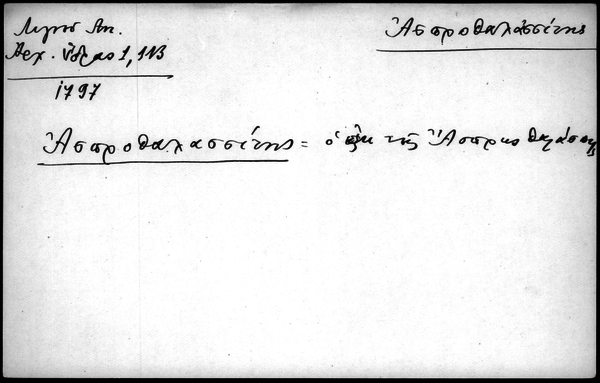 Λιγνὸ Ἀπ.
Ἀρχ. Ὕδρας 1, 113
1797
Ἀσπροθαλασσίτης
Ἀσπροθαλασσίτης = ὁ ἐκ τῆς Ἄσπρης θαλάσσης